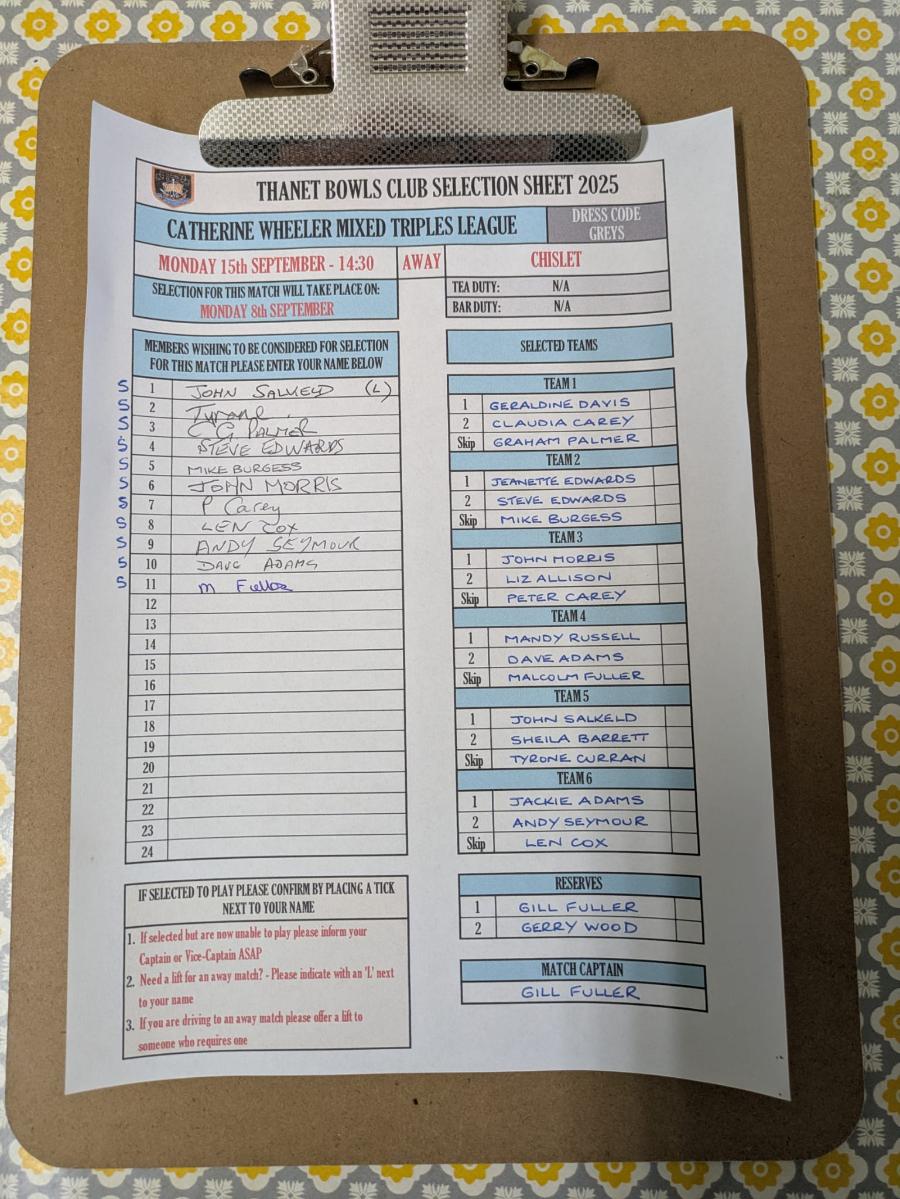 THANET BOWLS CLUB SELECTION SHEET 2025
CATHERINE WHEELER MIXED TRIPLES LEAGUE
DRESS CODE
GREYS
MONDAY 15th SEPTEMBER - 14:30 AWAY CHISLET
SELECTION FOR THIS MATCH WILL TAKE PLACE ON:
MONDAY 8th SEPTEMBER
TEA DUTY: N/A
BAR DUTY: N/A
MEMBERS WISHING TO BE CONSIDERED FOR SELECTION
FOR THIS MATCH PLEASE ENTER YOUR NAME BELOW
S 1 JOHN SALKELD (L)
S 2 Tyrone
S 3 G PALMER
S 4 STEVE EDWARDS
S 5 MIKE BURGESS
S 6 JOHN MORRIS
S 7 P Carey
S 8 LEN COX
S 9 ANDY SEYMOUR
S 10 DAVE ADAMS
S 11 M Fuller
12
13
14
15
16
17
18
19
20
21
22
23
24
IF SELECTED TO PLAY PLEASE CONFIRM BY PLACING A TICK
NEXT TO YOUR NAME
1. If selected but are now unable to play please inform your
Captain or Vice-Captain ASAP
2. Need a lift for an away match? - Please indicate with an 'L' next
to your name
3. If you are driving to an away match please offer a lift to
someone who requires one
SELECTED TEAMS
TEAM 1
1 GERALDINE DAVIS
2 CLAUDIA CAREY
Skip GRAHAM PALMER
TEAM 2
1 JEANETTE EDWARDS
2 STEVE EDWARDS
Skip MIKE BURGESS
TEAM 3
1 JOHN MORRIS
2 LIZ ALLISON
Skip PETER CAREY
TEAM 4
1 MANDY RUSSELL
2 DAVE ADAMS
Skip MALCOLM FULLER
TEAM 5
1 JOHN SALKELD
2 SHEILA BARRETT
Skip TYRONE CURRAN
TEAM 6
1 JACKIE ADAMS
2 ANDY SEYMOUR
Skip LEN COX
RESERVES
1 GILL FULLER
2 GERRY WOOD
MATCH CAPTAIN
GILL FULLER